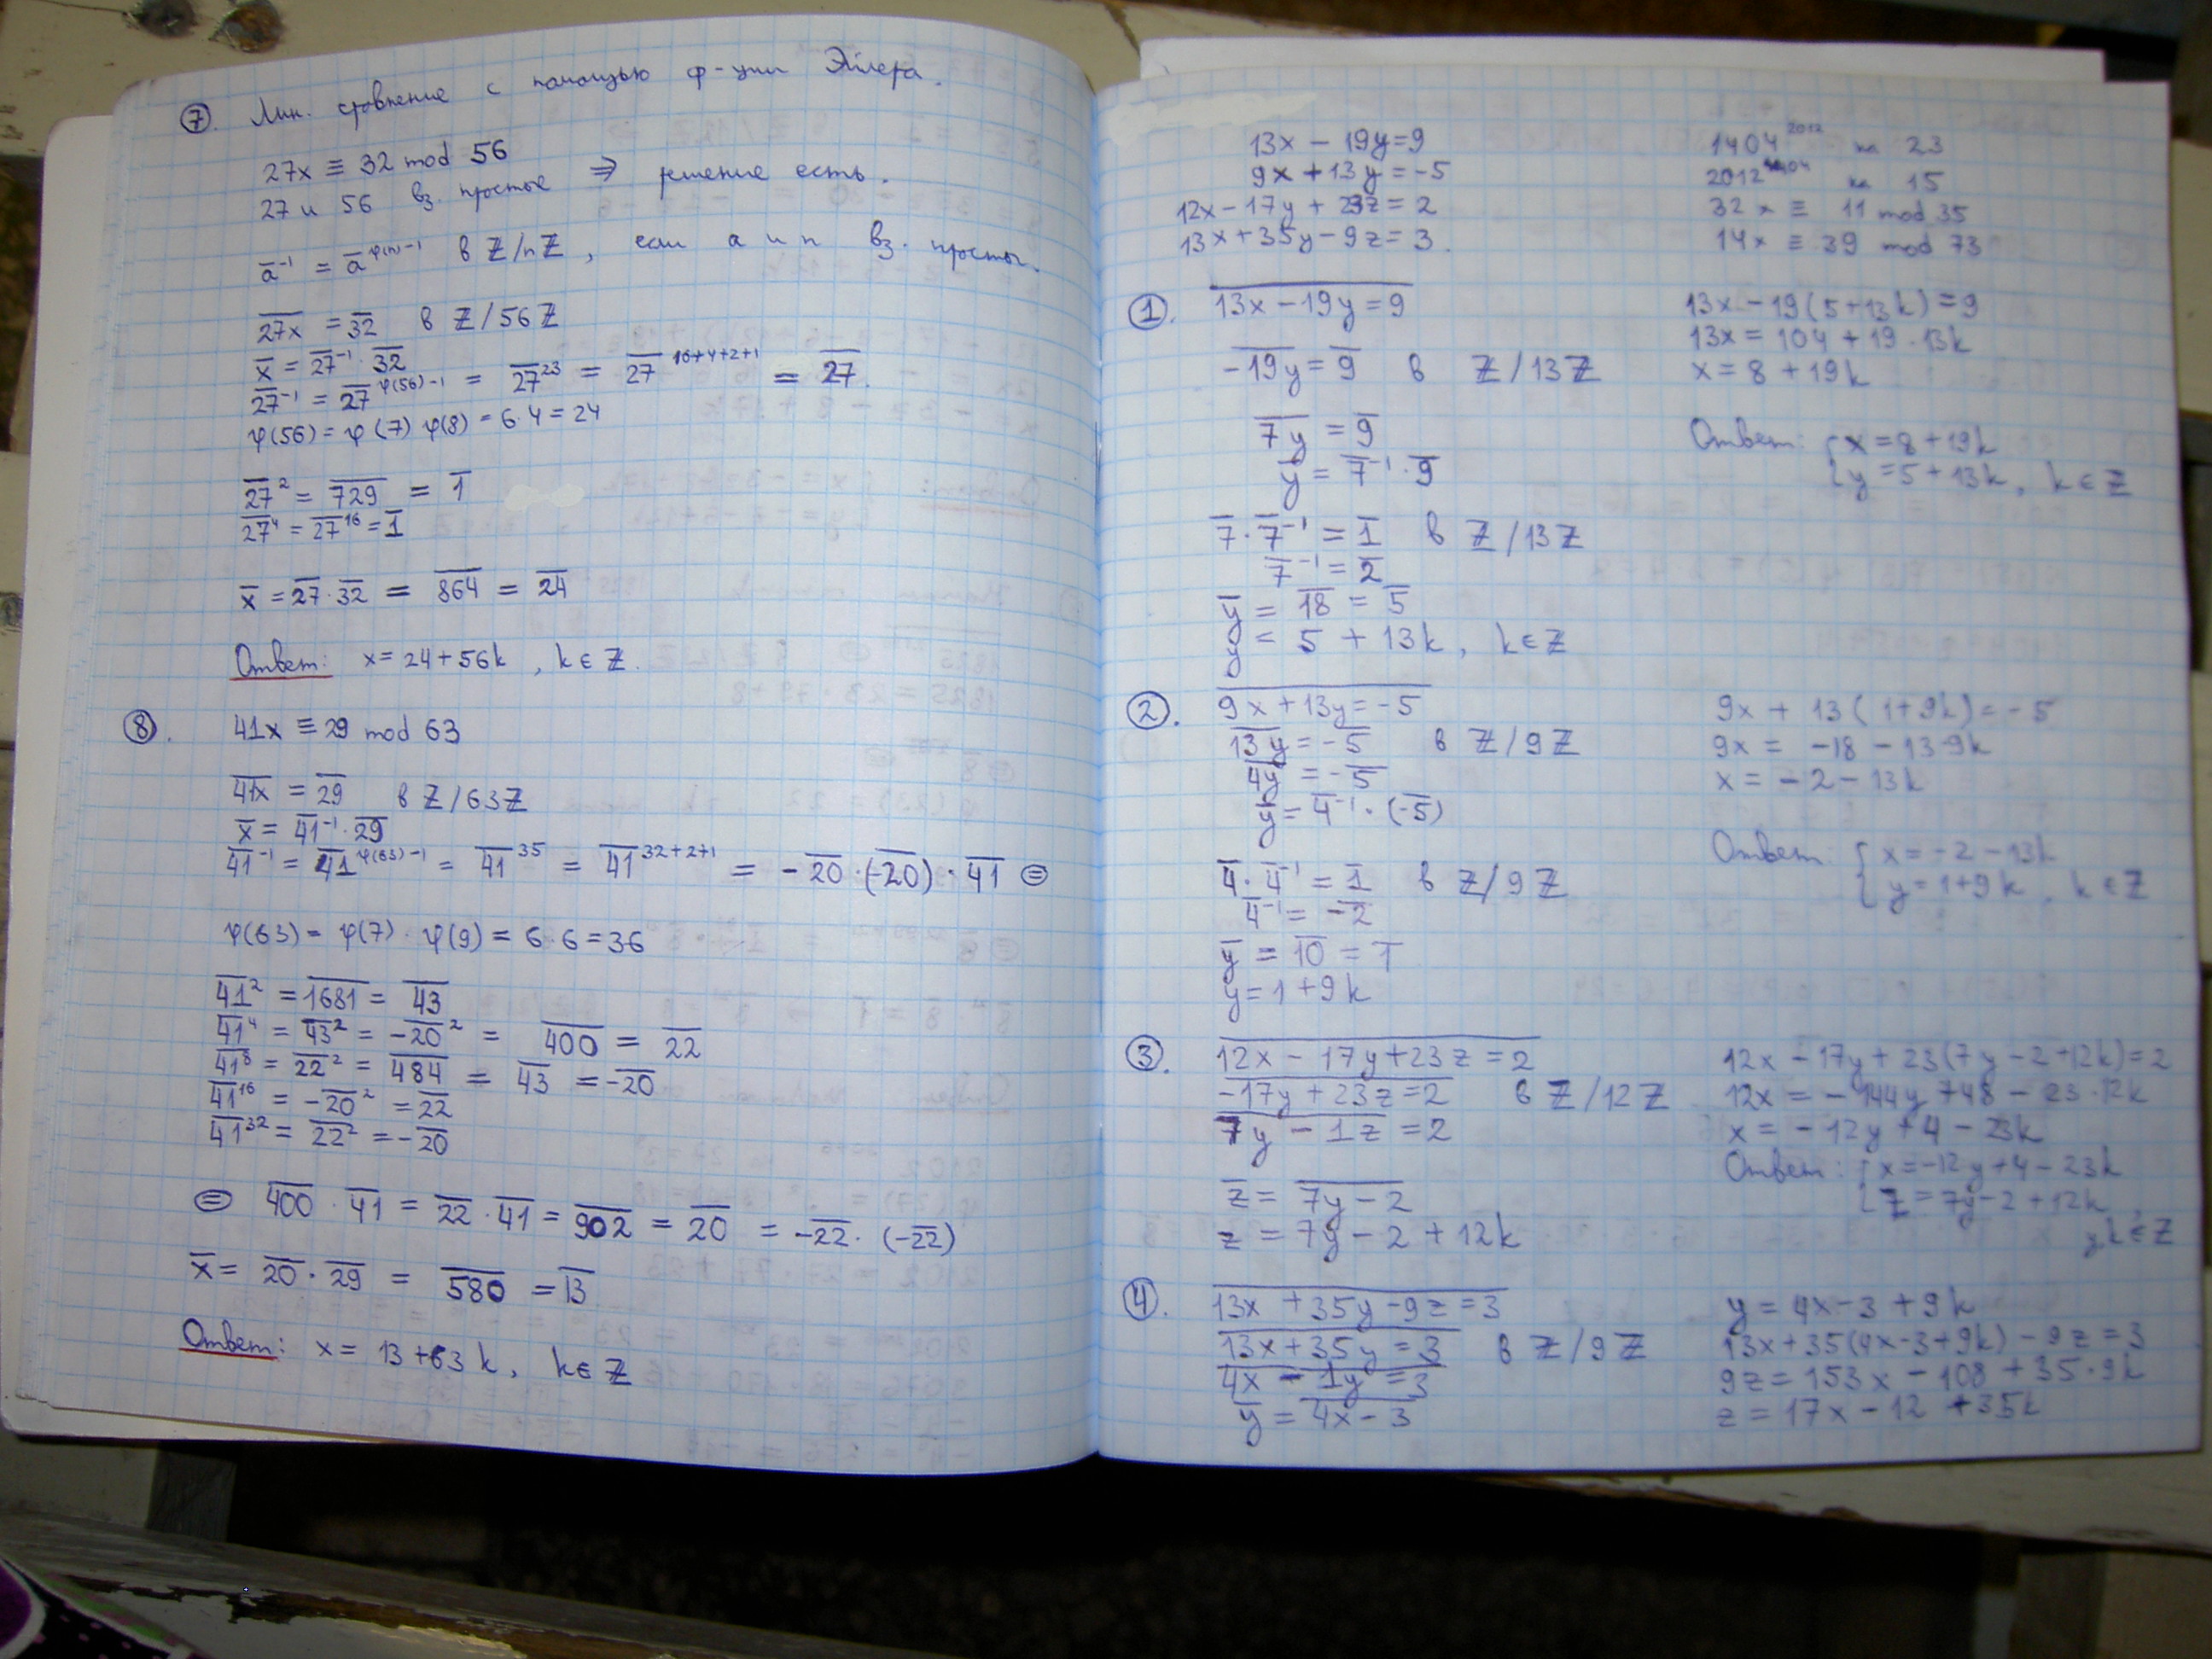 7. Лин. сравнение с помощью ф-ции Эйлера.
27x ≡ 32 mod 56
27 и 56 вз. простые ⇒ решение есть.
a̅⁻¹ = a̅^(φ(n)-1) в Z/nZ, если a и n вз. просты.
2̅7̅x̅ = 3̅2̅ в Z/56Z
x̅ = 2̅7̅⁻¹ · 3̅2̅
2̅7̅⁻¹ = 2̅7̅^(φ(56)-1) = 2̅7̅²³ = 2̅7̅^(16+4+2+1) = 2̅7̅.
φ(56) = φ(7) φ(8) = 6·4 = 24
2̅7̅² = 7̅2̅9̅ = 1̅
2̅7̅⁴ = 2̅7̅¹⁶ = 1̅
x̅ = 2̅7̅ · 3̅2̅ = 8̅6̅4̅ = 2̅4̅
Ответ: x = 24 + 56k, k ∈ Z.
8. 41x ≡ 29 mod 63
4̅1̅x̅ = 2̅9̅ в Z/63Z
x̅ = 4̅1̅⁻¹ · 2̅9̅
4̅1̅⁻¹ = 4̅1̅^(φ(63)-1) = 4̅1̅³⁵ = 4̅1̅^(32+2+1) = -2̅0̅ · (-2̅0̅) · 4̅1̅ ⊜
φ(63) = φ(7) · φ(9) = 6·6 = 36
4̅1̅² = 1̅6̅8̅1̅ = 4̅3̅
4̅1̅⁴ = 4̅3̅² = -2̅0̅² = 4̅0̅0̅ = 2̅2̅
4̅1̅⁸ = 2̅2̅² = 4̅8̅4̅ = 4̅3̅ = -2̅0̅
4̅1̅¹⁶ = -2̅0̅² = 2̅2̅
4̅1̅³² = 2̅2̅² = -2̅0̅
⊜ 4̅0̅0̅ · 4̅1̅ = 2̅2̅ · 4̅1̅ = 9̅0̅2̅ = 2̅0̅ = -2̅2̅ · (-2̅2̅)
x̅ = 2̅0̅ · 2̅9̅ = 5̅8̅0̅ = 1̅3̅
Ответ: x = 13 + 63k, k ∈ Z
13x - 19y = 9
9x + 13y = -5
12x - 17y + 23z = 2
13x + 35y - 9z = 3.
1404²⁰¹² на 23
2012¹⁴⁰⁴ на 15
32x ≡ 11 mod 35
14x ≡ 39 mod 73
1. 13x - 19y = 9
-19y = 9 в Z/13Z
7y = 9
y̅ = 7̅⁻¹ · 9̅
7̅ · 7̅⁻¹ = 1̅ в Z/13Z
7̅⁻¹ = 2̅
y̅ = 1̅8̅ = 5̅
y = 5 + 13k, k ∈ Z
13x - 19(5 + 13k) = 9
13x = 104 + 19·13k
x = 8 + 19k
Ответ: { x = 8 + 19k
{ y = 5 + 13k, k ∈ Z
2. 9x + 13y = -5
13y = -5 в Z/9Z
4y = -5
y̅ = 4̅⁻¹ · (-5̅)
4̅ · 4̅⁻¹ = 1̅ в Z/9Z
4̅⁻¹ = -2̅
y̅ = 1̅0̅ = 1̅
y = 1 + 9k
9x + 13(1 + 9k) = -5
9x = -18 - 13·9k
x = -2 - 13k
Ответ: { x = -2 - 13k
{ y = 1 + 9k, k ∈ Z
3. 12x - 17y + 23z = 2
-17y + 23z = 2 в Z/12Z
7y - 1z = 2
z̅ = 7y - 2
z = 7y - 2 + 12k
12x - 17y + 23(7y - 2 + 12k) = 2
12x = -144y + 48 - 23·12k
x = -12y + 4 - 23k
Ответ: { x = -12y + 4 - 23k
{ z = 7y - 2 + 12k
y, k ∈ Z
4. 13x + 35y - 9z = 3
13x + 35y = 3 в Z/9Z
4x - 1y = 3
y̅ = 4x - 3
y = 4x - 3 + 9k
13x + 35(4x - 3 + 9k) - 9z = 3
9z = 153x - 108 + 35·9k
z = 17x - 12 + 35k